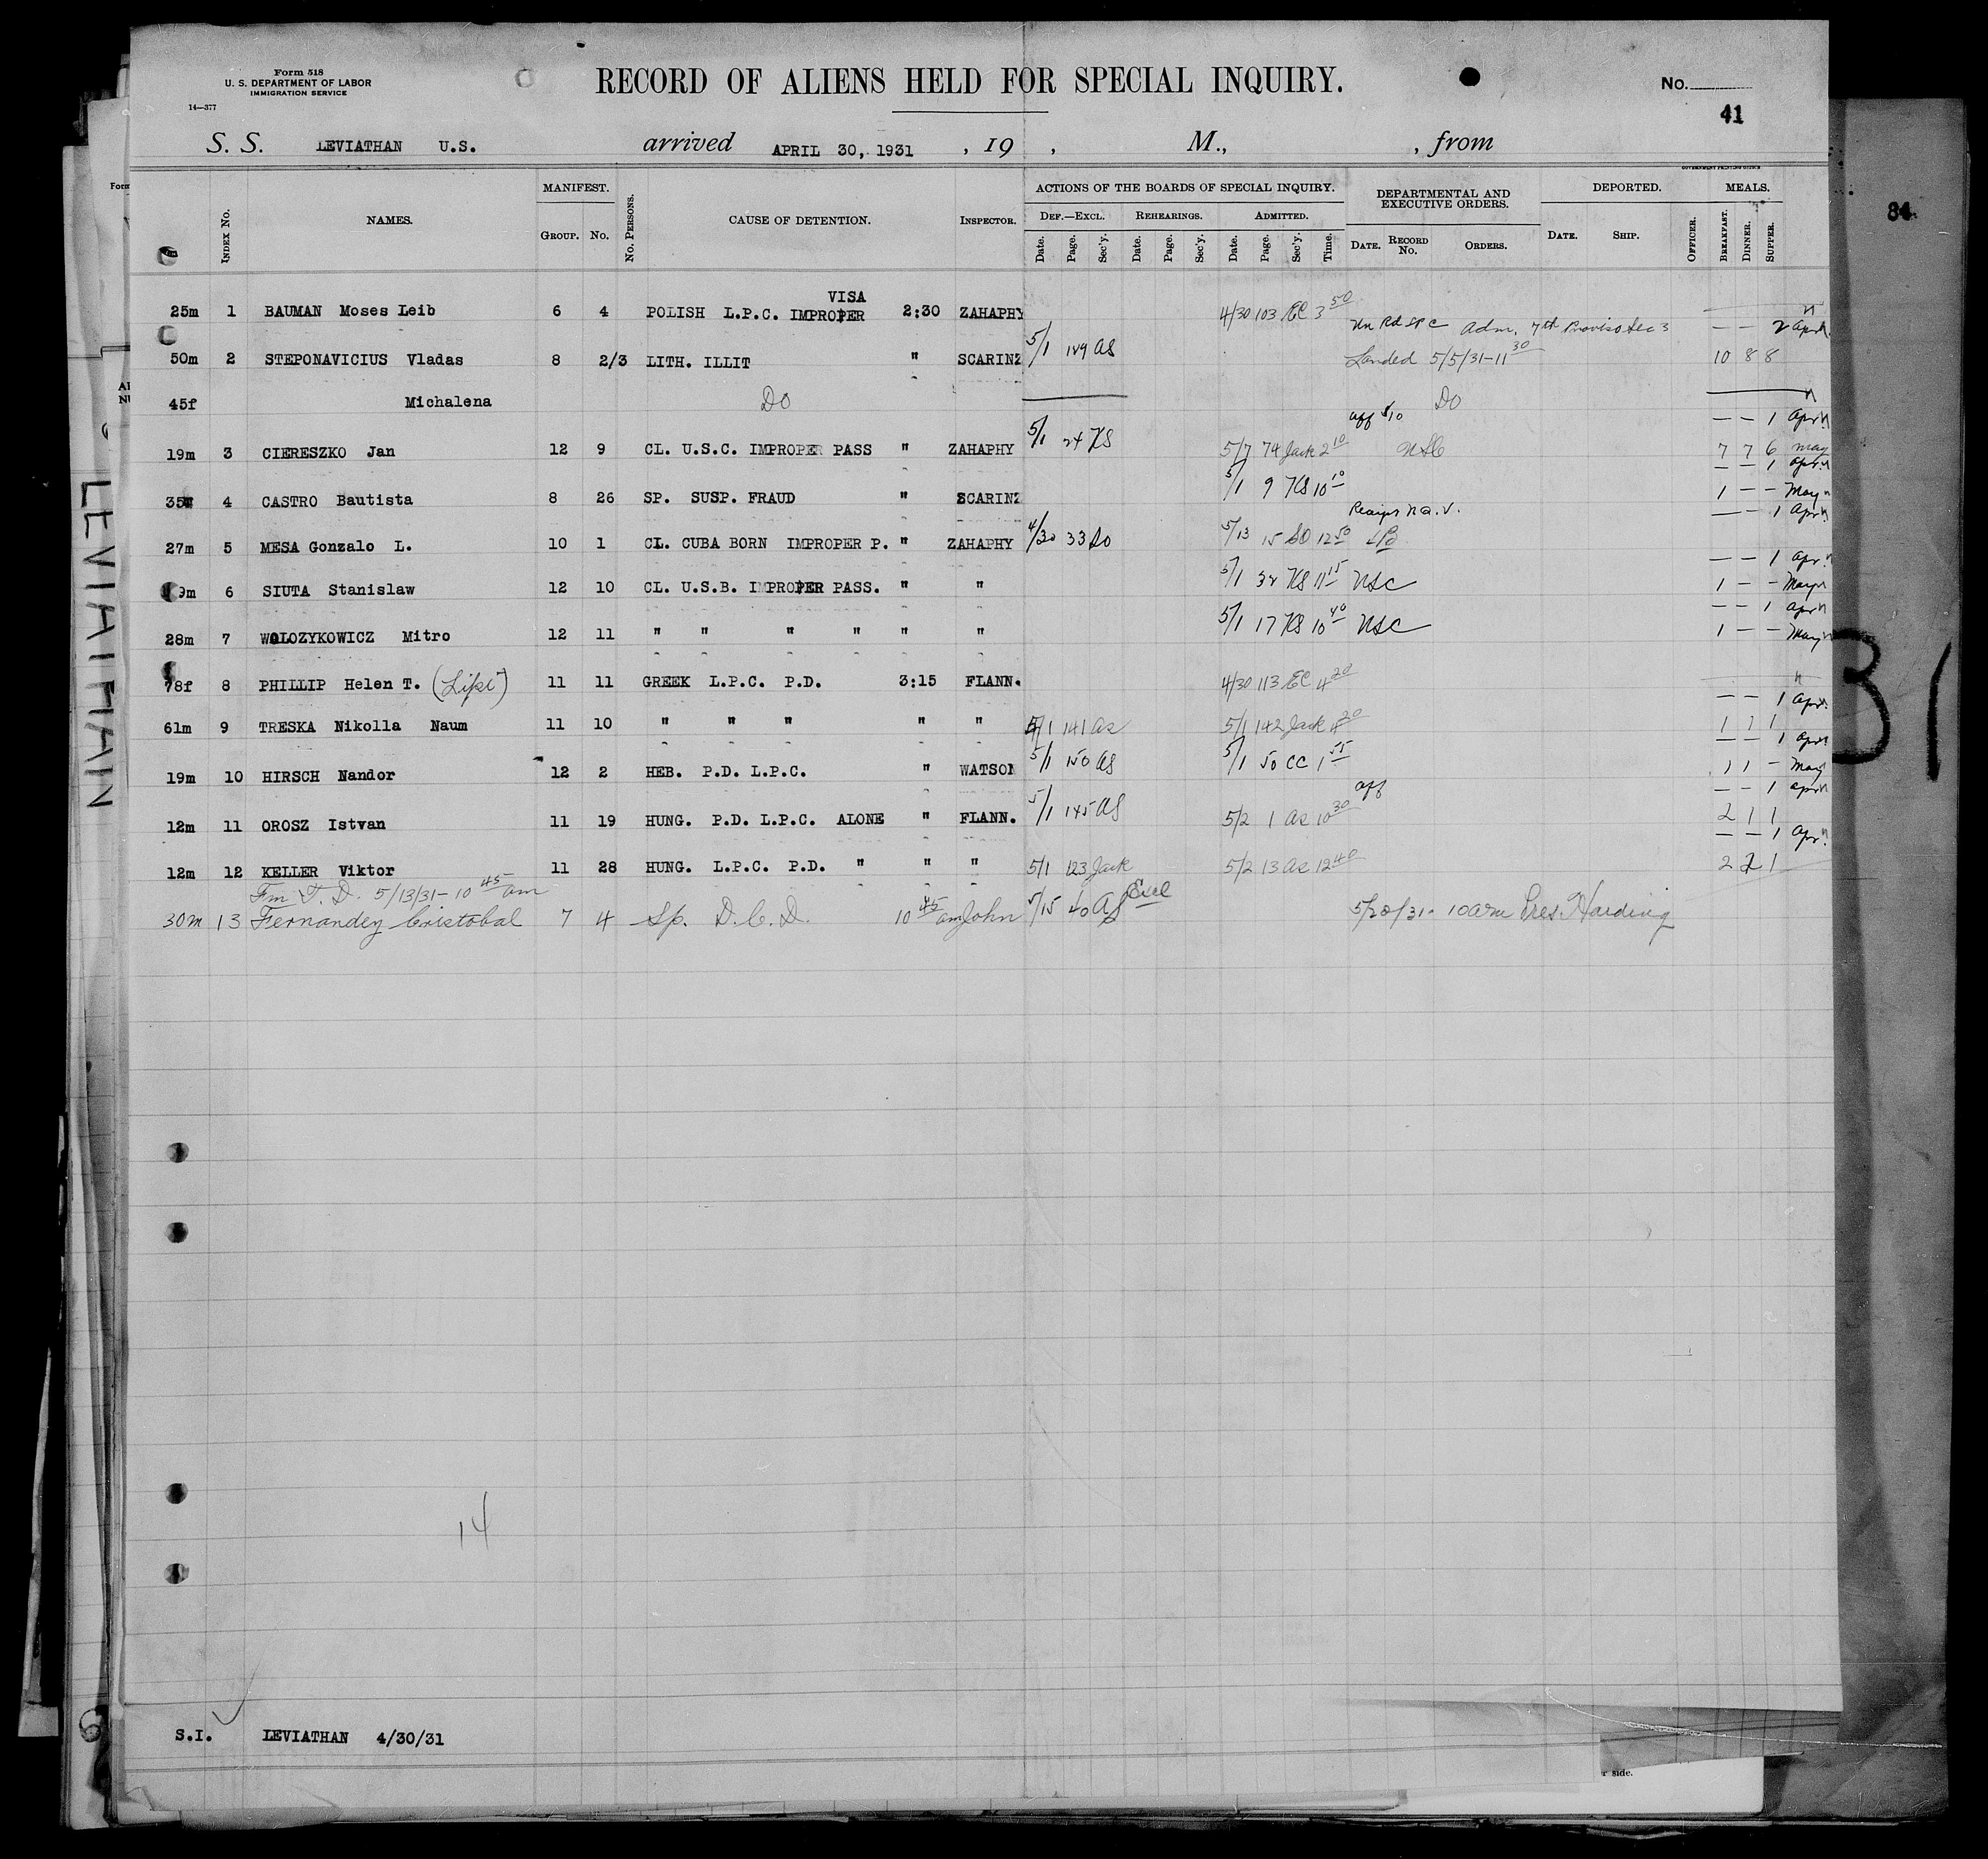 Form 518
U. S. DEPARTMENT OF LABOR
IMMIGRATION SERVICE
14—377
RECORD OF ALIENS HELD FOR SPECIAL INQUIRY.
No.
41
S. S. LEVIATHAN U.S. arrived APRIL 30, 1931 , 19 , M., , from
GOVERNMENT PRINTING OFFICE
INDEX NO. NAMES. MANIFEST. GROUP. NO. NO. PERSONS. CAUSE OF DETENTION. INSPECTOR. ACTIONS OF THE BOARDS OF SPECIAL INQUIRY. DEF.—EXCL. Date. Page. Sec'y. REHEARINGS. Date. Page. Sec'y. ADMITTED. Date. Page. Sec'y. Time. DEPARTMENTAL AND EXECUTIVE ORDERS. DATE. RECORD NO. ORDERS. DEPORTED. DATE. SHIP. OFFICER. MEALS. BREAKFAST. DINNER. SUPPER.
VISA
25m 1 BAUMAN Moses Leib 6 4 POLISH L.P.C. IMPROPER 2:30 ZAHAPHY 4/30 103 EC 3 50
Adm. 7th Proviso Sec 3 — — 2 Apr
50m 2 STEPONAVICIUS Vladas 8 2/3 LITH. ILLIT " SCARINZ 5/1 149 AS Landed 5/5/31-11 30 10 8 8
45f Michalena Do Do
aff — — 1 Apr
19m 3 CIERESZKO Jan 12 9 CL. U.S.C. IMPROPER PASS " ZAHAPHY 5/1 24 KS 5/7 74 Jack 2 10 7 7 6 May
— — 1 Apr
35 4 CASTRO Bautista 8 26 SP. SUSP. FRAUD " SCARINZ 5/1 9 KS 10 10 1 — — May
— — 1 Apr
27m 5 MESA Gonzalo L. 10 1 CL. CUBA BORN IMPROPER P. " ZAHAPHY 4/30 33 5/13 15 12 50
— — 1 Apr
9m 6 SIUTA Stanislaw 12 10 CL. U.S.B. IMPROPER PASS. " " 5/1 32 KS 11 15 USC 1 — — May
— — 1 Apr
28m 7 WOLOZYKOWICZ Mitro 12 11 " " " " " " 5/1 17 KS 10 40 USC 1 — — May
78f 8 PHILLIP Helen T. 11 11 GREEK L.P.C. P.D. 3:15 FLANN. 4/30 113 EC 4 20
— — 1 Apr
61m 9 TRESKA Nikolla Naum 11 10 " " " " " 5/1 141 As 5/1 142 Jack 4 20 1 1 1
— — 1 Apr
19m 10 HIRSCH Nandor 12 2 HEB. P.D. L.P.C. " WATSON 5/1 150 AS 5/1 50 CC 1 55 1 1 — May
aff — — 1 Apr
12m 11 OROSZ Istvan 11 19 HUNG. P.D. L.P.C. ALONE " FLANN. 5/1 145 AS 5/2 1 As 10 30 2 1 1
— — 1 Apr
12m 12 KELLER Viktor 11 28 HUNG. L.P.C. P.D. " " " 5/1 123 Jack 5/2 13 As 12 40 2 2 1
Fm T. D. 5/13/31-10 45 am
30m 13 Fernandez Cristobal 7 4 Sp. D.C.D. 10 45 am John 5/15 40 AS Excl 5/20/31- 10 am Pres. Harding
14
S.I. LEVIATHAN 4/30/31
LEVIATHAN
84
31
r side.